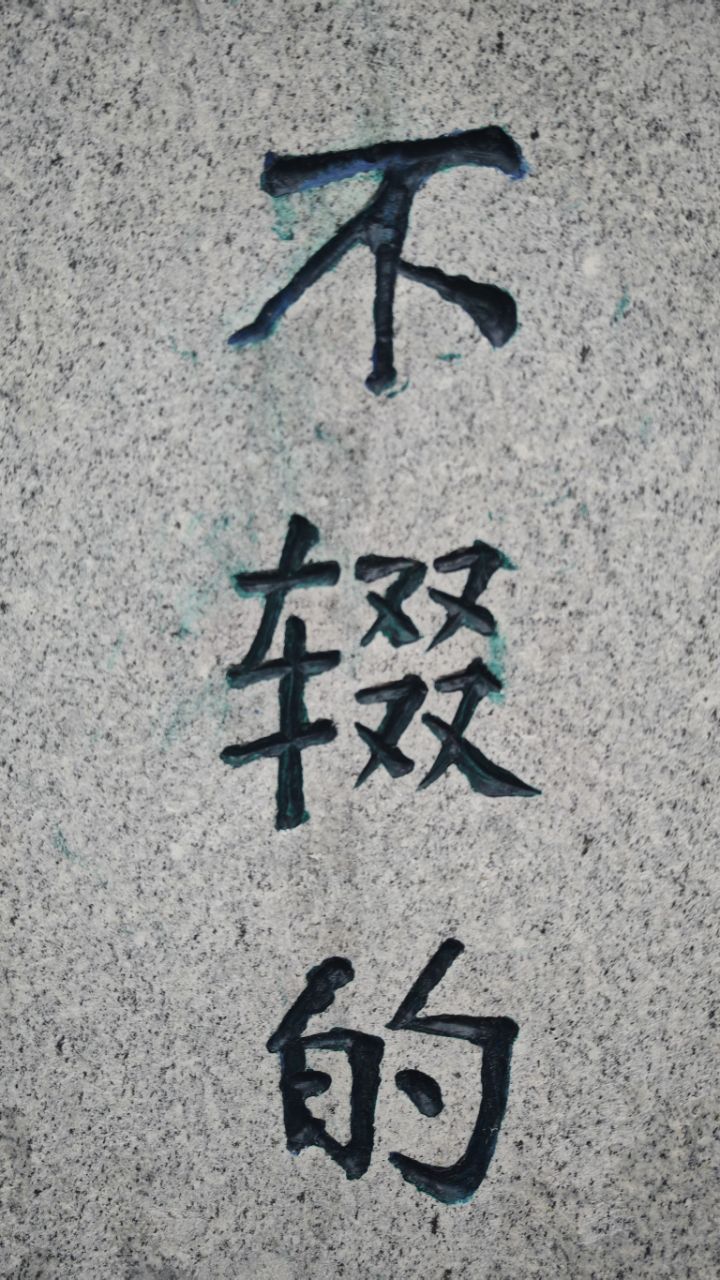 不辍的